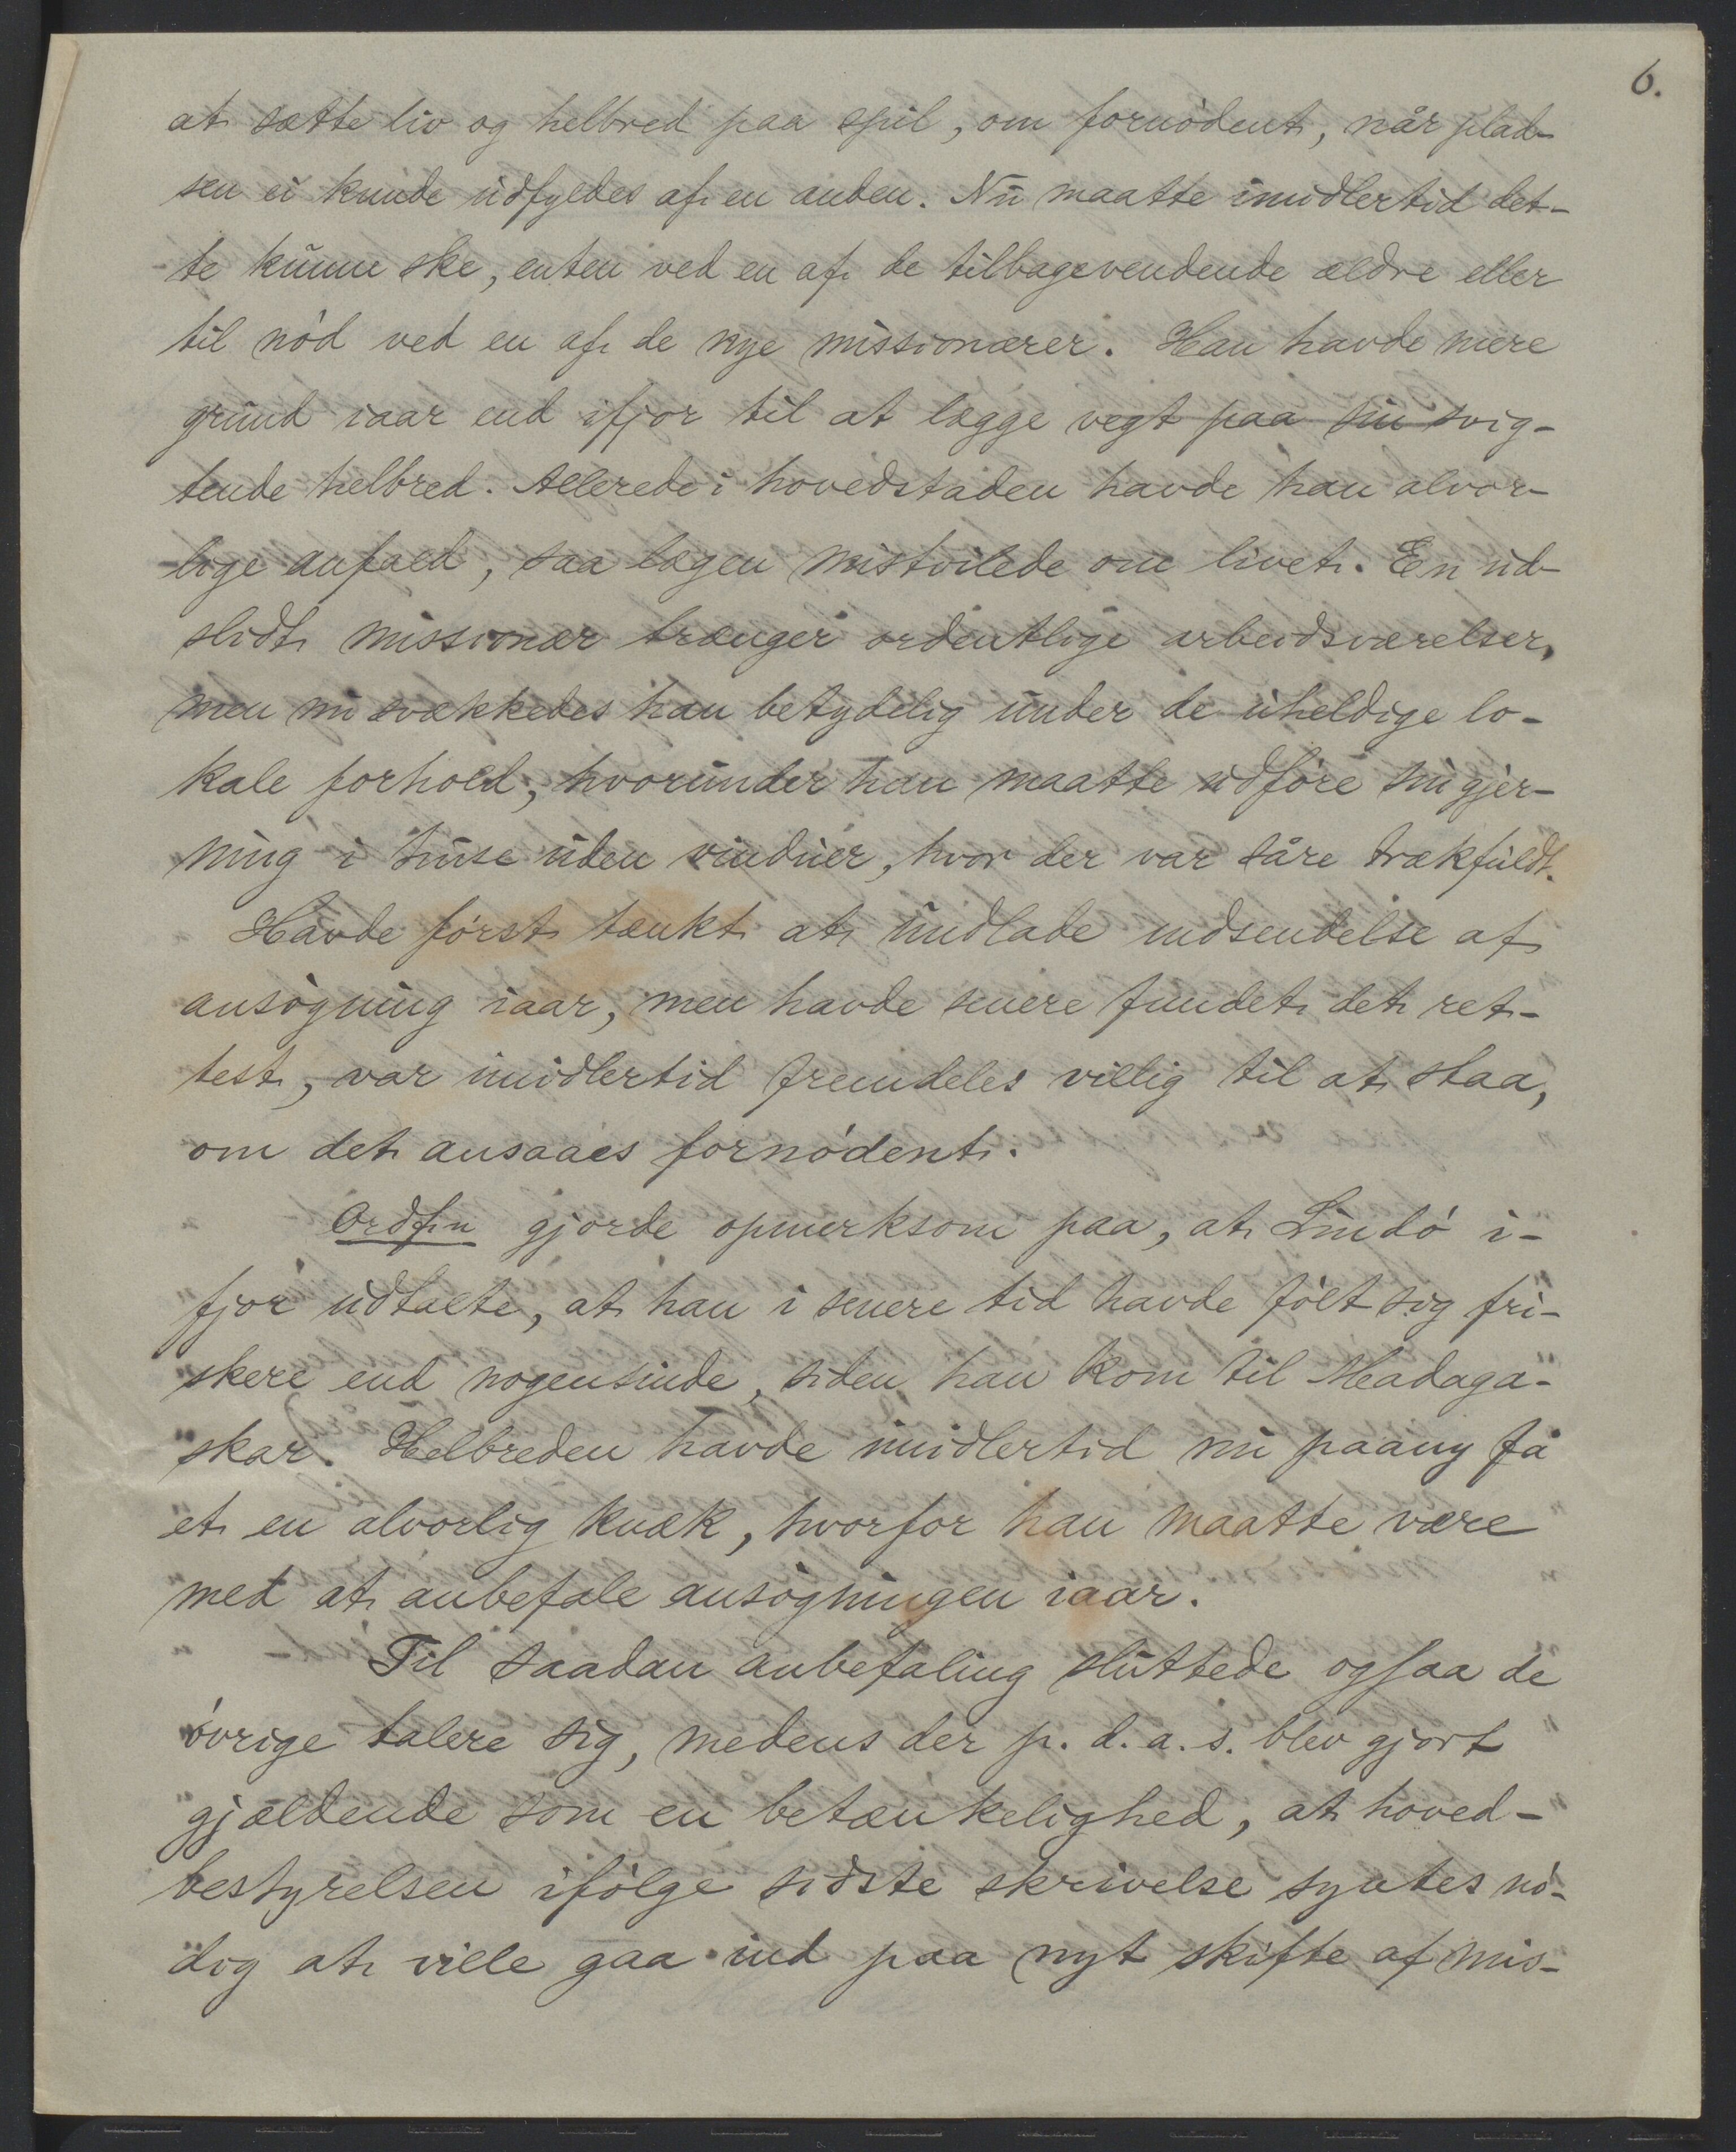 6.
at sætte liv og helbred paa spil, om fornødent, når plad-
sen ei kunde udfyldes af en anden. Nu maatte imidlertid det-
te kunne ske, enten ved en af de tilbagevendende ældre eller
til nød ved en af de nye missionærer. Han havde mere
grund iaar end ifjor til at lægge vegt paa sin svig-
tende helbred. Allerede i hovedstaden havde han alvor-
lige anfald, saa lægen mistvilede om livet. En ud-
slidt missionær trænger ordentlige arbeidsværelser,
men nu svækkedes han betydelig under de uheldige lo-
kale forhold, hvorunder han maatte udføre sin gjer-
ning i huse uden vinduer, hvor der var såre trækfuldt.
Havde først tænkt at undlade indsendelse af
ansøgning iaar, men havde senere fundet det ret-
test, var imidlertid fremdeles villig til at staa,
om det ansaaes fornødent.
Ordf.n gjorde opmerksom paa, at Lindø i-
fjor udtalte, at han i senere tid havde følt sig fri-
skere end nogensinde, siden han kom til Madaga-
skar. Helbreden havde imidlertid nu paany få
et en alvorlig knæk, hvorfor han maatte være
med at anbefale ansøgningen iaar.
Til saadan anbefaling sluttede ogsaa de
øvrige talere sig, medens der p. d. a. s. blev gjort
gjældende som en betænkelighed, at hoved-
bestyrelsen ifølge sidste skrivelse syntes nø-
dig at ville gaa ind paa nyt skifte af mis-